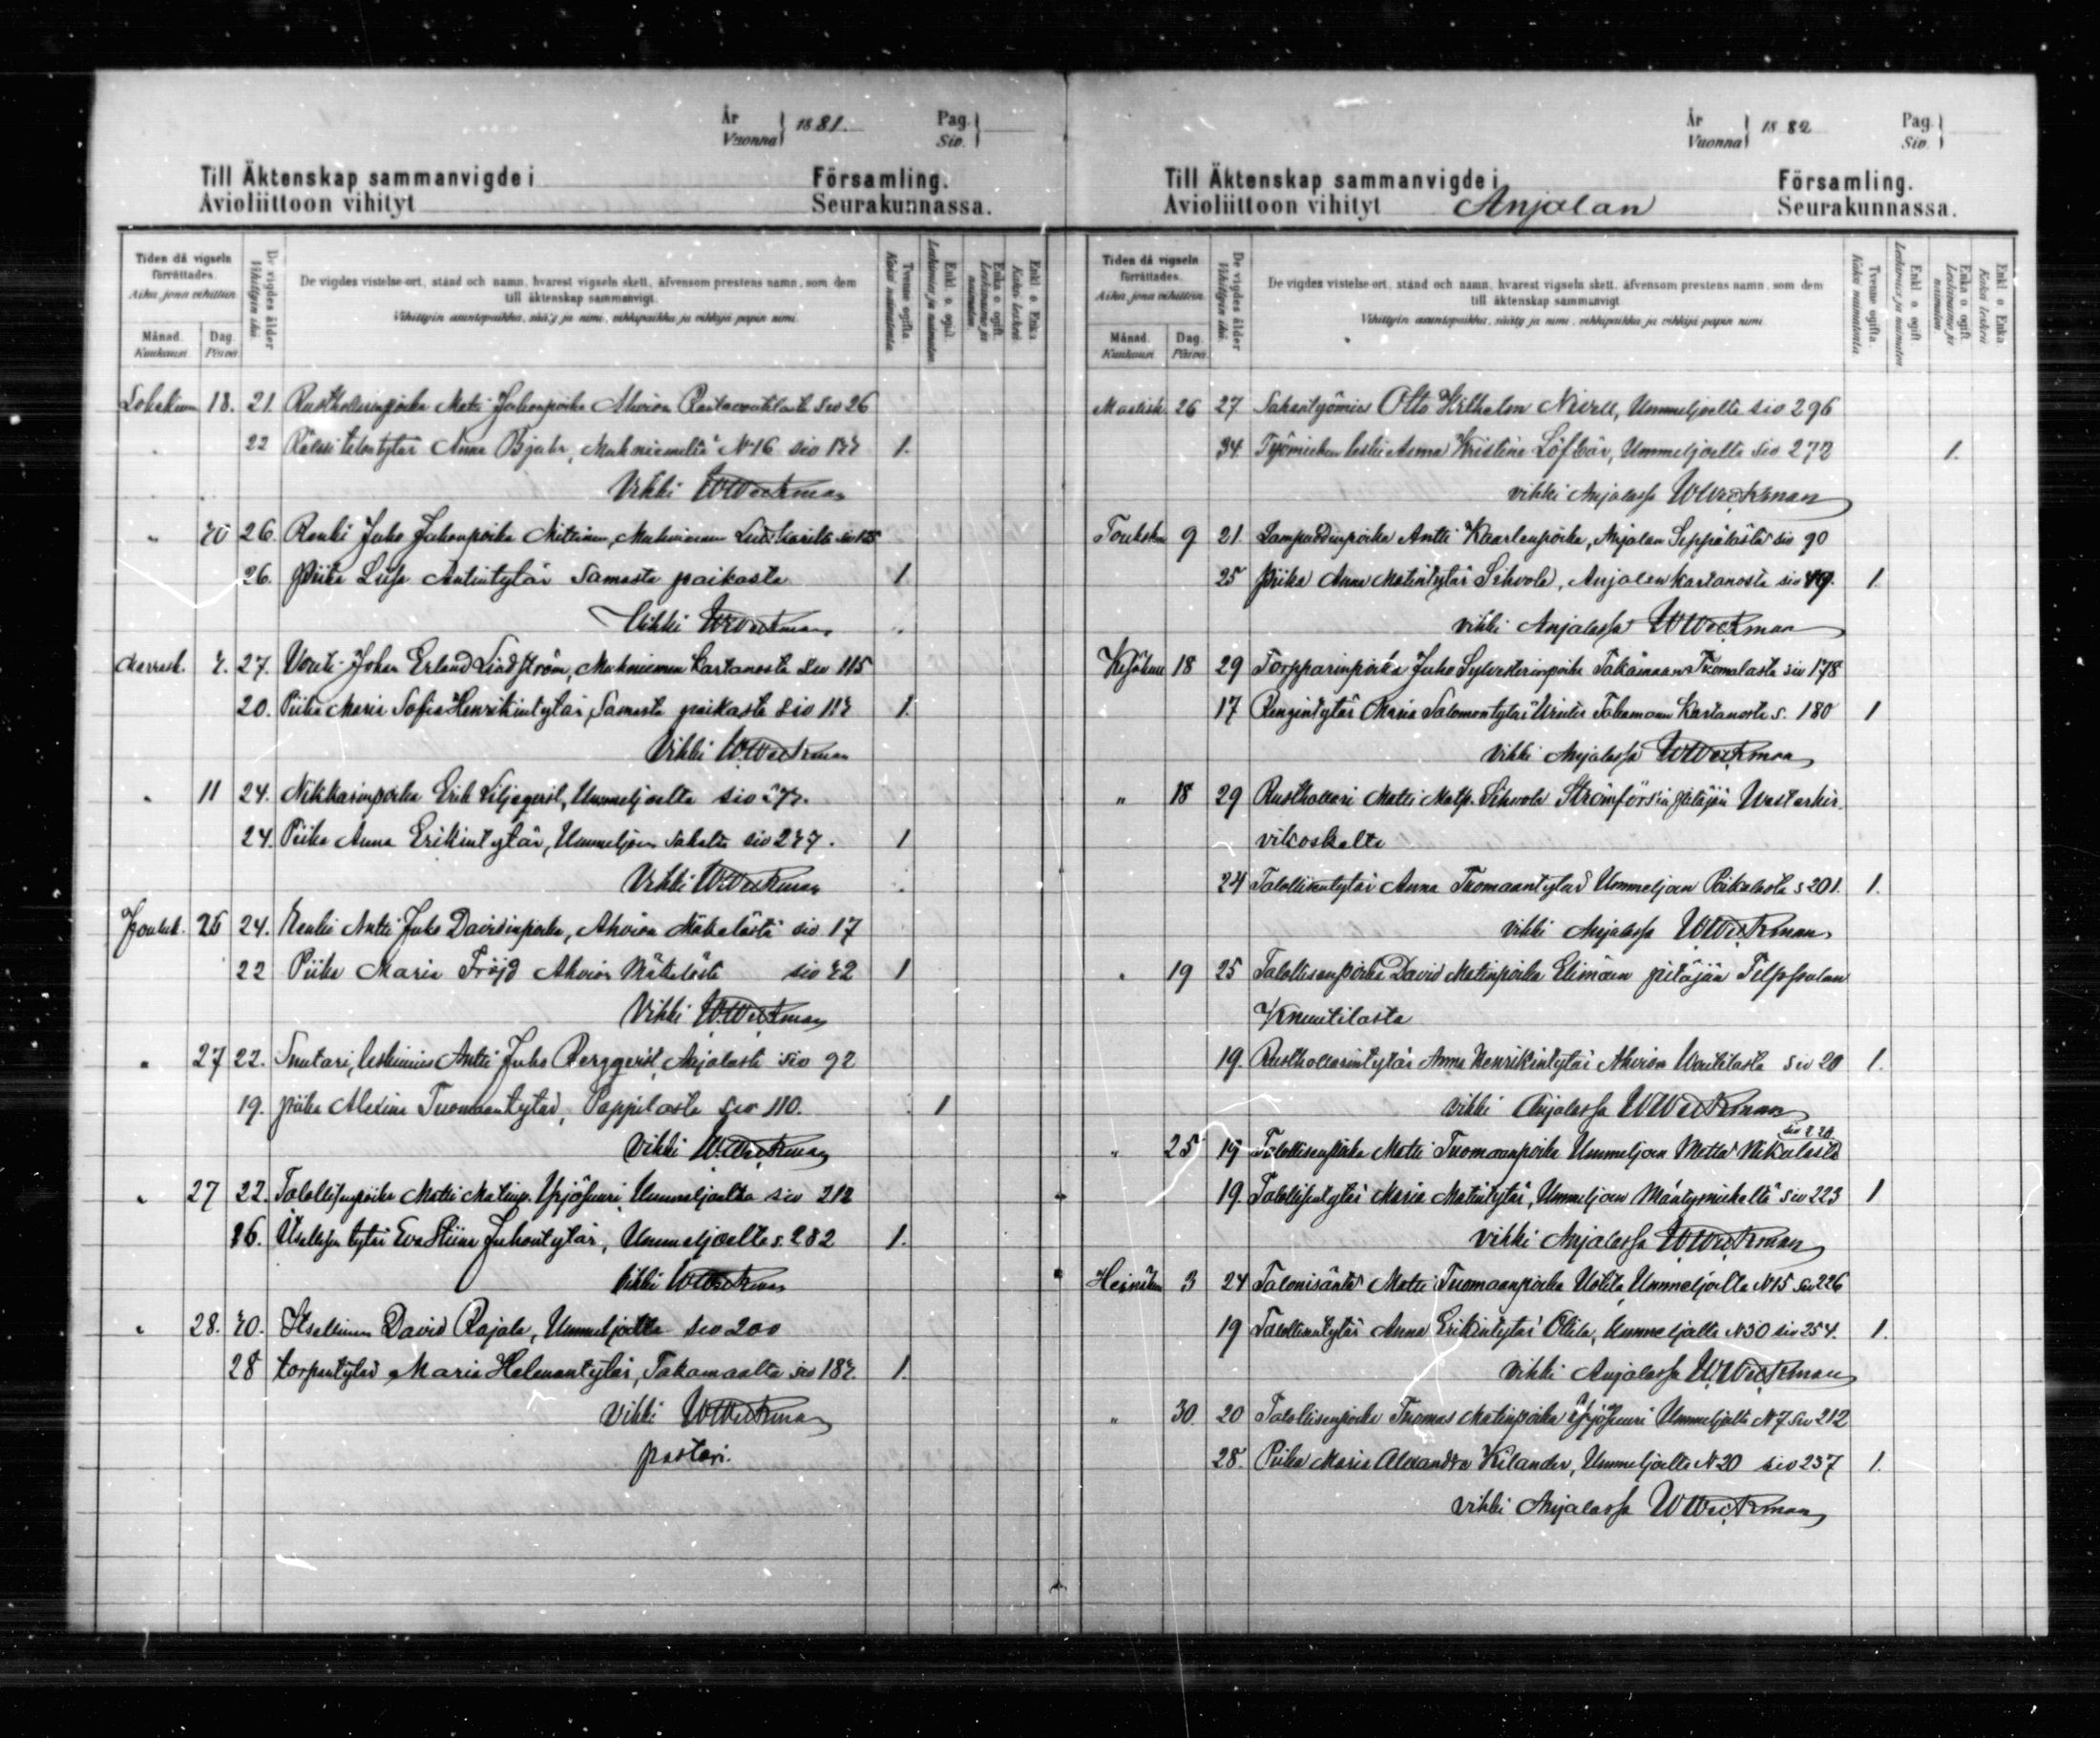 År
Vuonna } 1881.
Pag.
Siv. }
Till Äktenskap sammanvigde i Församling.
Avioliittoon vihityt Seurakunnassa.
Tiden då vigseln förrättades.
Aika, jona vihittiin
Månad. Kuukausi
Dag. Päivä
De vigdes ålder
Vihittyin ikä.
De vigdes vistelse-ort, stånd och namn, hvarest vigseln skett, äfvensom prestens namn, som dem
till äktenskap sammanvigt.
Vihittyin asuntopaikka, sääty ja nimi, vihkipaikka ja vihkijä papin nimi.
Tvenne ogifta.
Kaksi naimatonta.
Enkl. o. ogift.
Leskimies ja naimaton
Enka o. ogift.
Leskivaimo ja naimaton
Enkl. o. Enka
Kaksi leskeä
Lokakuun 18. 21. Rusthollarinpoika Matti Juhonpoika Ahvion siv 26
22 tytär Anna Muhniemeltä N 16 siv 1. 
Vihki WWeckman
" 26. Renki Juho Juhonpoika Muhniemen
26. Piika Liisa Antintytär Samasta paikasta 1
Vihki WWeckman
Marrask. 27. Vouti Johan Erland Lindström, Muhniemen Kartanosta siv 115
20. Piika Maria Sofia Henrikintytär, Samasta paikasta siv 1.
Vihki WWeckman
" 11 24. Nikkarinpoika Erik Liljeqvist, Ummeljoelta siv
24. Piika Anna Erikintytär, Ummeljoen Sahalta siv 1
Vihki WWeckman
Jouluk. 26 24. Renki Antti Juho Davidinpoika, Ahvion Mäkelästä siv 17
22 Piika Maria Fröjd Ahvion Mäkelästä siv 1
Vihki WWeckman
" 27 22. Suutari, leskimies Antti Juho Bergqvist, Anjalasta siv 92
19. piika Alexina Tuomaantytär, Pappilasta siv 110. 1
Vihki WWeckman
" 27 22. Talollisenpoika Matti Matinp. Yrjösuuri, Ummeljoelta siv 212
26. Itsellisen tytär Eva Stiina Juhontytär, Ummeljoelta s. 282 1.
Vihki WWeckman
" 28. Itsellinen David Rajala, Ummeljoelta siv 200
28 torpantytär Maria Helenantytär, Takamaalta siv 1.
Vihki WWeckman
pastori.
År
Vuonna } 1882
Pag.
Siv. }
Till Äktenskap sammanvigde i Församling.
Avioliittoon vihityt Anjalan Seurakunnassa.
Tiden då vigseln förrättades.
Aika, jona vihittiin
Månad. Kuukausi
Dag. Päivä
De vigdes ålder
Vihittyin ikä.
De vigdes vistelse-ort, stånd och namn, hvarest vigseln skett, äfvensom prestens namn, som dem
till äktenskap sammanvigt
Vihittyin asuntopaikka, sääty ja nimi, vihkipaikka ja vihkijä papin nimi.
Tvenne ogifta.
Kaksi naimatonta
Enkl. o. ogift
Leskimies ja naimaton
Enka o. ogift.
Leskivaimo ja naimaton
Enkl. o. Enka
Kaksi leskeä
Maalisk 26 27 Sahantyömies Otto Wilhelm Ummeljoelta siv 296
34 Työmiehen leski Anna Kristina Ummeljoelta siv 272 1.
vihki Anjalassa WWeckman
Toukokuu 9 21 Lampuodinpoika Antti Kaarlenpoika, Anjalan Seppälästä siv 90
25 Piika Anna Matintytär Sihvola, Anjalan kartanosta siv 1.
vihki Anjalassa WWeckman
Kesäkuu 18 29 Torpparinpoika Juho Sylvesterinpoika Takamaan Tuomalasta siv 178
17 Rengintytär Maria Salomontytär Takamaan Kartanosta s. 180 1
vihki Anjalassa WWeckman
" 18 29 Rusthollari Matti Matp. Sihvola Strömförsin pitäjän
24 Talollisentytär Anna Tuomaantytär Ummeljoen s 201. 1.
vihki Anjalassa WWeckman
" 19 25 Talollisenpoika David Matinpoika Elimäen pitäjän
Knuutilasta
19. Rusthollarintytär Anna Henrikintytär Ahvion Voutilasta siv 20 1.
vihki Anjalassa WWeckman
" 25 19 Talollisenpoika Matti Tuomaanpoika Ummeljoen
19. Talollisentytär Maria Matintytär, Ummeljoen siv 223 1
vihki Anjalassa WWeckman
Heinäkuu 3 24 Talonisäntä Matti Tuomaanpoika Uotila, Ummeljoelta N15 siv 226
19 Talollisentytär Anna Erikintytär Ollila, Ummeljoelta N30 siv 254. 1.
vihki Anjalassa WWeckman
" 30. 20 Talollisenpoika Tuomas Matinpoika Yrjösuuri Ummeljoelta N7 siv 212
28. Piika Maria Alexandra Kilander, Ummeljoelta N20 siv 237 1.
vihki Anjalassa WWeckman